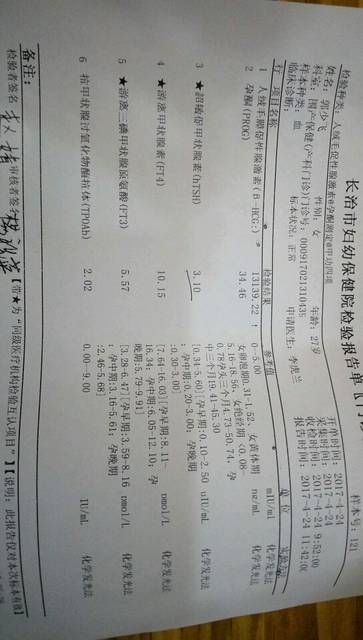 长治市妇幼保健院检验报告单【门诊】
样本号: 121
检验种类:人绒毛促性腺激素@孕酮测定@甲功四项
开单时间: 2017-4-24
姓名: 郭少飞 性别: 女 年龄: 27岁
采集时间: 2017-4-24
科室: 围产保健(产科门诊)门诊号: 000917021310435
收检时间: 2017-4-24 9:52:00
样本种类: 血 标本状况: 正常 申请医生: 李虎兰
报告时间: 2017-4-24 11:42:00
临床诊断:
行 项目名称 检验结果 参考值 单位
1 人绒毛膜促性腺激素(B-HCG:) 13139.22 ↑ 0-5.00 mIU/ml 化学发光法
2 孕酮(PROG) 34.46 女卵泡期0.31-1.52, 女黄体期5.16-18.56, 女绝经期<0.08-0.78孕天三个月4.73-50.74, 孕中三个月19.41-45.30 ng/mL 化学发光法
3 ★超敏促甲状腺素(hTSH) 3.10 [0.34-5.60][孕早期:0.10-2.50 孕中期:0.20-3.00; 孕晚期:0.30-3.00] uIU/mL 化学发光法
4 ★游离甲状腺素(FT4) 10.15 [7.64-16.03][孕早期:8.11-16.34; 孕中期:6.05-12.10; 孕晚期:5.79-9.91] pmol/L 化学发光法
5 ★游离三碘甲状腺原氨酸(FT3) 5.57 [3.28-6.47][孕早期:3.59-8.16 孕中期:3.16-5.61; 孕晚期:2.46-5.68] pmol/L 化学发光法
6 抗甲状腺过氧化物酶抗体(TPOAb) 2.02 0.00-9.00 IU/mL 化学发光法
备注:
检验者签名: 审核者签名: 【带★为“同级医疗机构检验互认项目”】【说明: 此报告仅对本次标本有效】